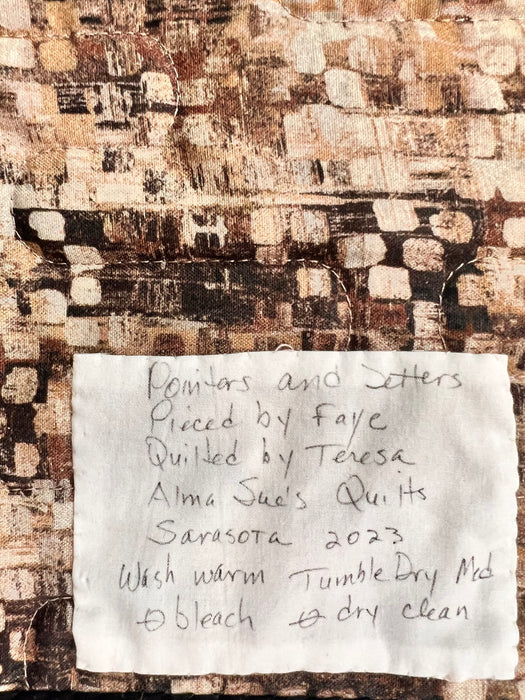 Pointers and Setters
Pieced by Faye
Quilted by Teresa
Alma Sue's Quilts
Sarasota 2023
Wash warm Tumble Dry Med
∅ bleach ∅ dry clean